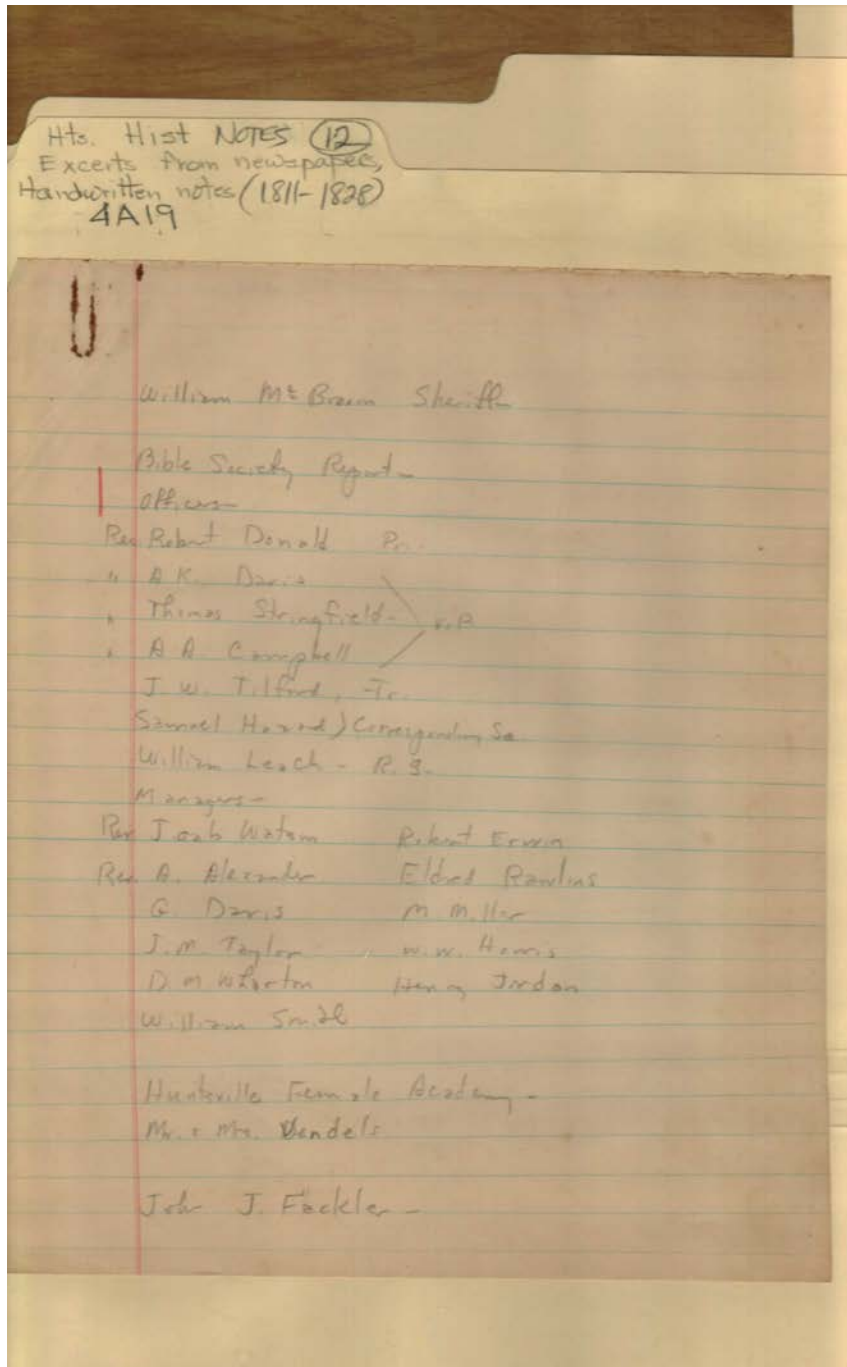 Hts. Hist NOTES (12)
Excerts from newspapers,
Handwritten notes (1811-1828)
4A19
William Mc Broom Sheriff
Bible Society Report-
Officers-
Rev Robert Donald Pr.
" A K. Davis
" Thomas Stringfield- V.P
" A A. Campbell
J W. Tilford, -Tr.
Samuel Hazard) Corresponding Se
William Leach - R. S.
Managers-
Rev Watson Robert Erwin
Rev. A. Alexander Eldred Rawlins
G. Davis M. Miller
J. M. Taylor W. W. Harris
D. M Wharton Henry Jordan
William Smith
Huntsville Female Academy-
Mr. + Mrs.
John J. Fackler-